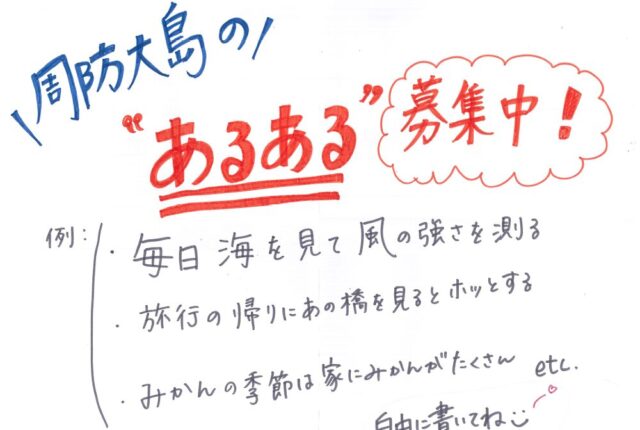 \周防大島の/
“あるある”募集中!
例:・毎日海を見て風の強さを測る
・旅行の帰りにあの橋を見るとホッとする
・みかんの季節は家にみかんがたくさん etc.
自由に書いてね